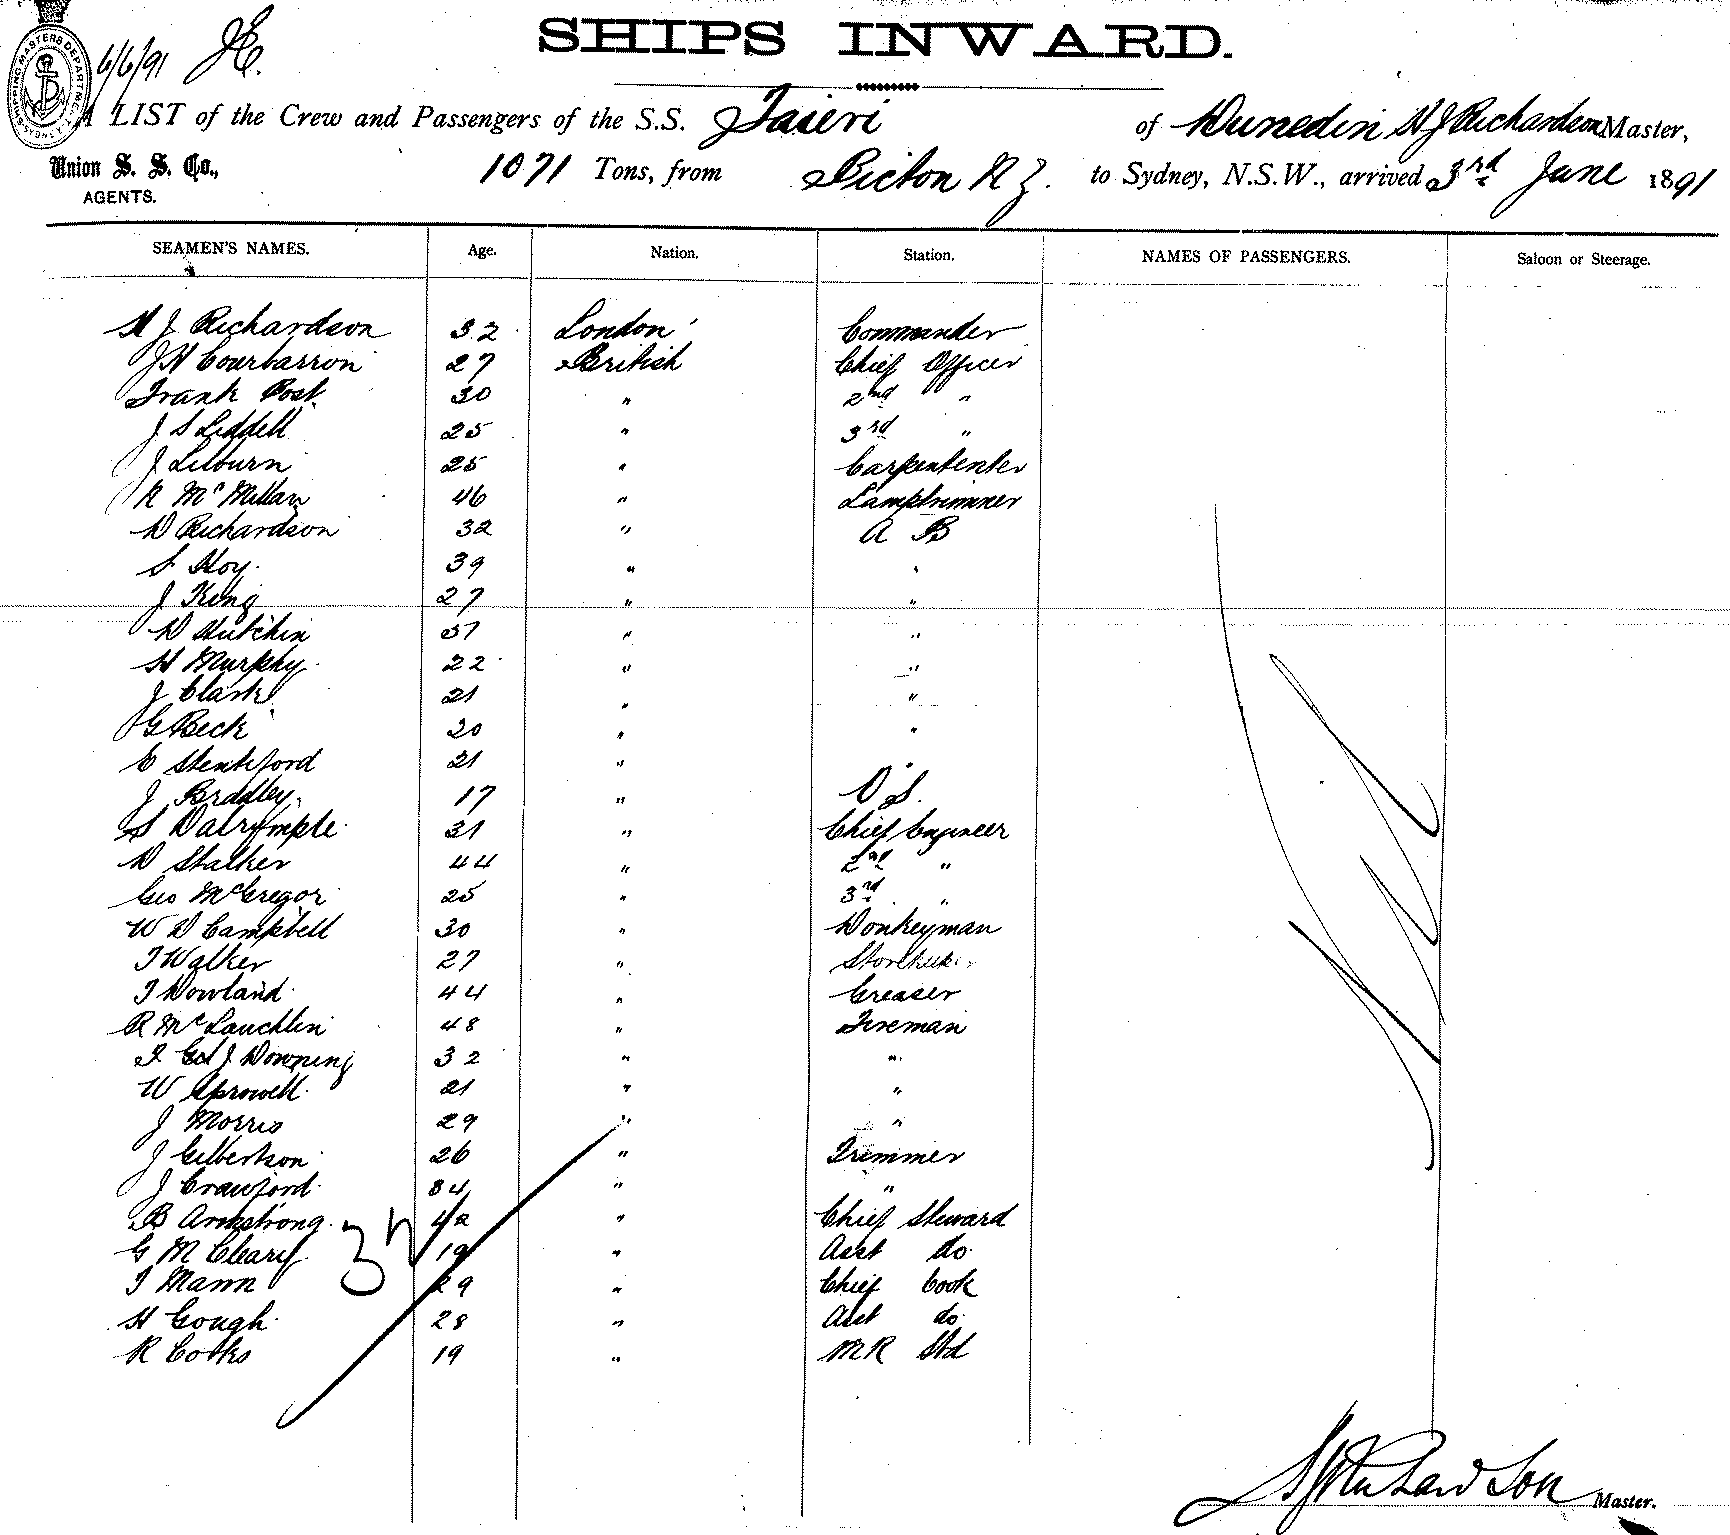 SHIPS INWARD.
6/6/91
A LIST of the Crew and Passengers of the S.S. Taieri of Dunedin H J Richardson Master,
Union S. S. Co., 1071 Tons, from Picton N Z. to Sydney, N.S.W., arrived 3rd June 1891
AGENTS.
SEAMEN'S NAMES. Age. Nation. Station. NAMES OF PASSENGERS. Saloon or Steerage.
H J Richardson 32 London Commander
J H Courbarron 27 British Chief Officer
Frank Post 30 " 2nd "
J S Liddell 25 " 3rd "
J Lebourn 25 " Carpententer
R McMillan 46 " Lamptrimmer
D Richardson 32 " A B
S Hoy 39 " "
J King 27 " "
D Hutchin 37 " "
H Murphy 22 " "
J Clark 21 " "
G Beck 30 " "
C Stentiford 21 " "
J Bradley 17 " O S.
S Dalrymple 31 " Chief Engineer
D Stalker 44 " 2nd "
Geo McGregor 25 " 3rd "
W D Campbell 30 " Donkeyman
T Walker 27 " Storekeeper
T Dowland 44 " Greaser
R McLauchlin 48 " Fireman
J Downing 32 " "
W Sprowell 21 " "
J Morris 29 " "
J Gilbertson 26 " Trimmer
J Crawford 34 " "
B Armstrong 42 " Chief Steward
G M Cleary 19 " Asst do
T Mann 29 " Chief Cook
H Gough 28 " Asst do
R Cooks 19 " M R Std
32
H J Richardson Master.